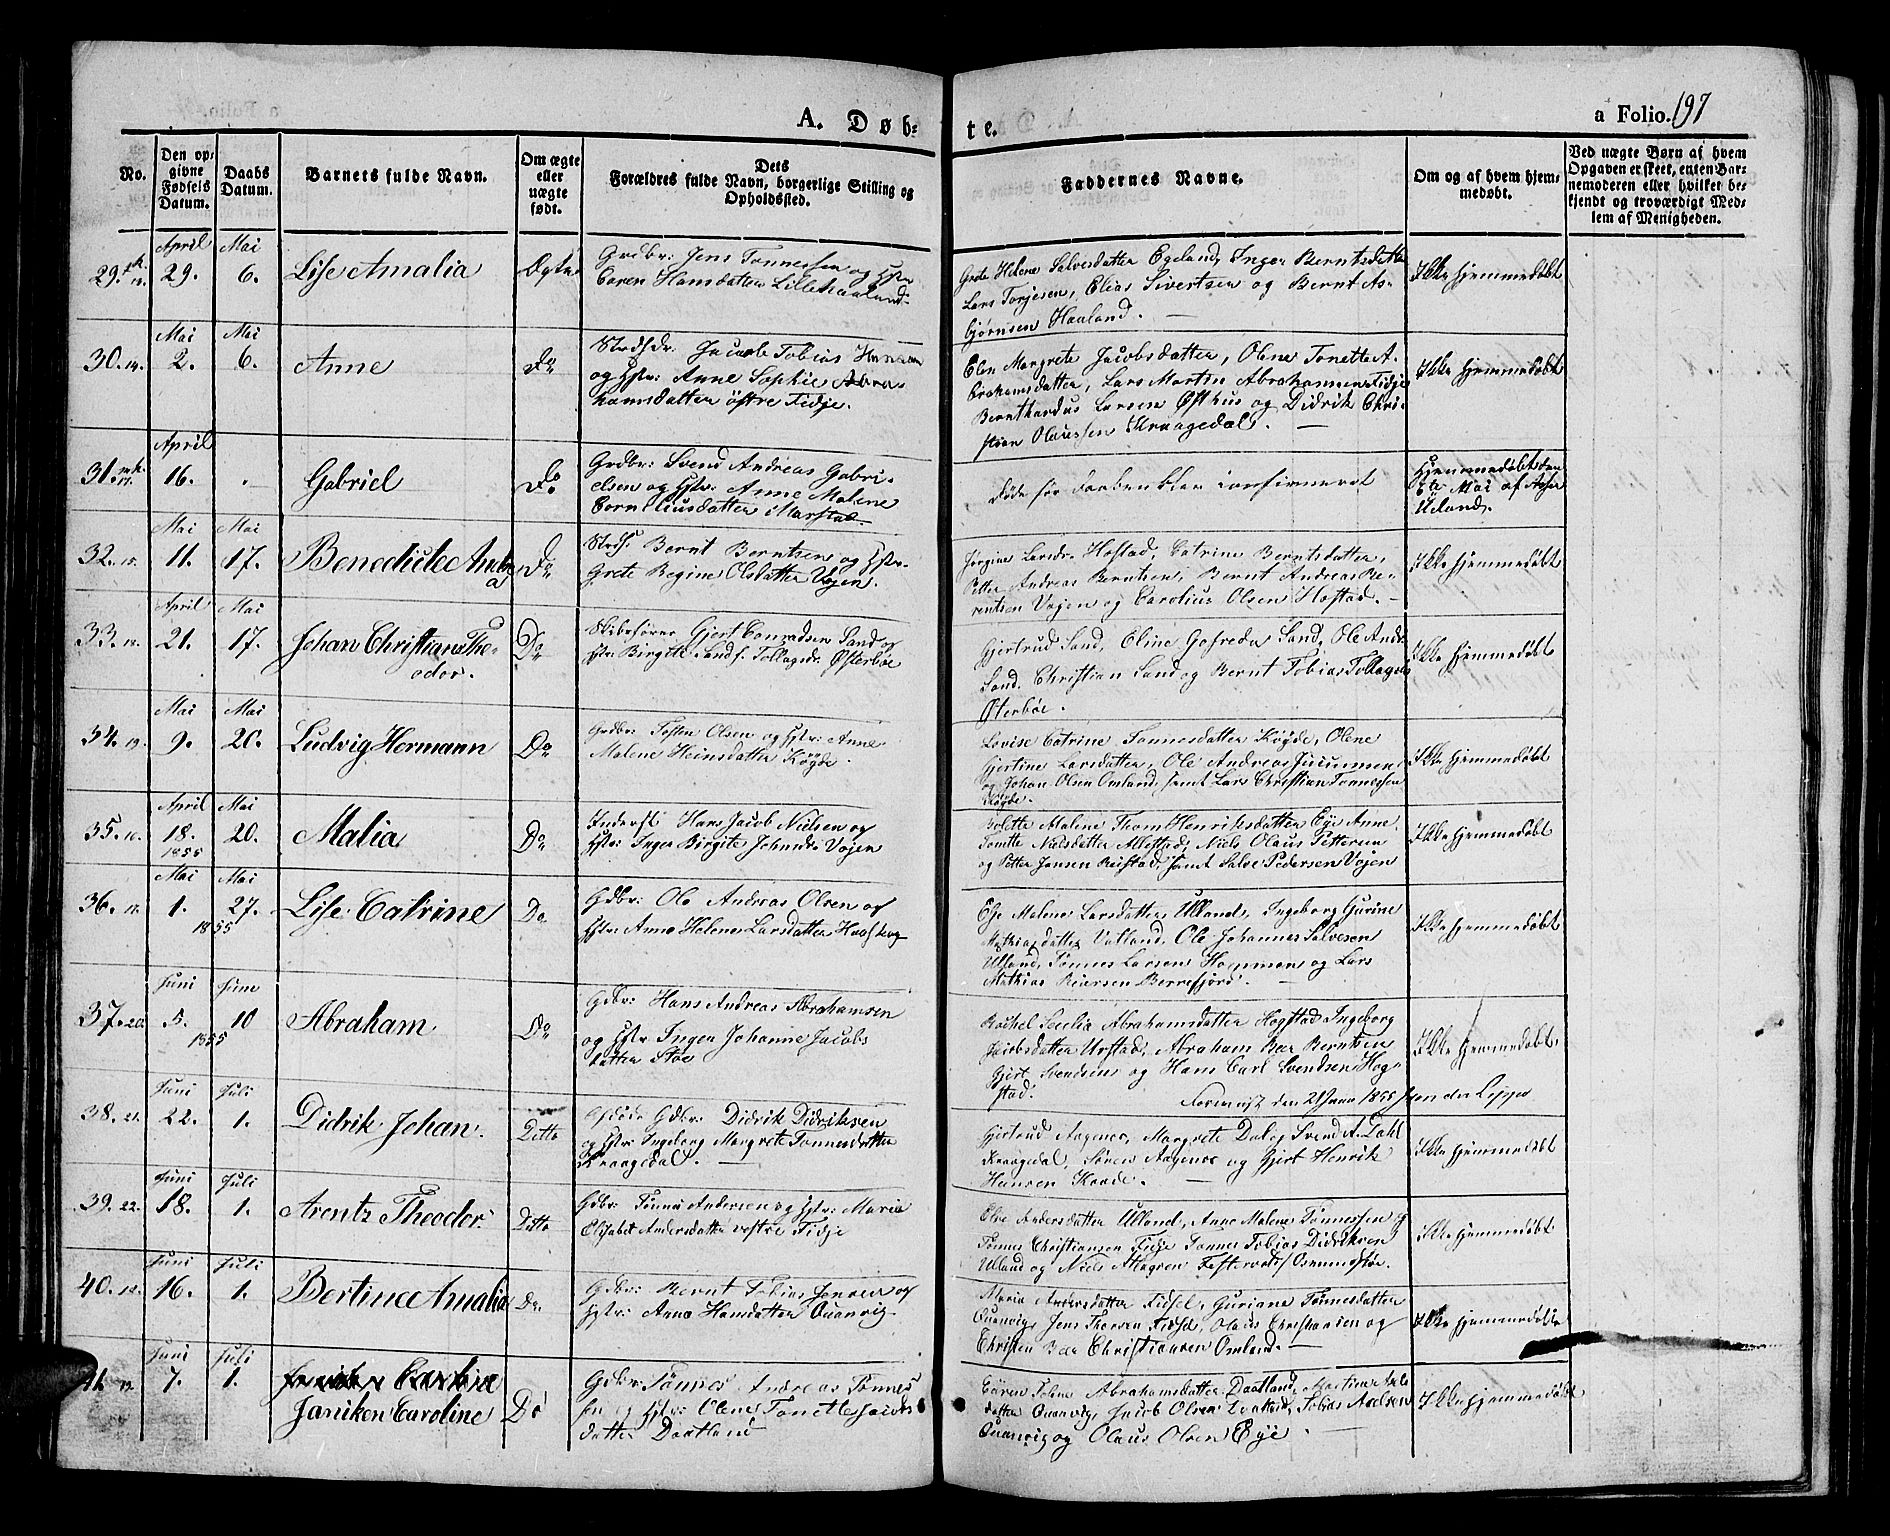 A. Døb-
te.
a Folio. 197
No.
Den op-
givne
Fødsels
Datum.
Daabs
Datum.
Barnets fulde Navn.
Om ægte
eller
uægte
født.
Dets
Forældres fulde Navn, borgerlige Stilling og
Opholdssted.
Faddernes Navne.
Om og af hvem hjem-
medøbt.
Ved uægte Børn af hvem
Opgaven er skeet, enten Bar-
nemoderen eller hvilket be-
kjendt og troværdigt Med-
lem af Menigheden.
April Mai
29. 29. 6. Lise Amalia Ægte
Grdbr: Jens Tønnessen og Hstr
Caren Hansdatter Lillehaaland
Grete Helene Salvesdatter Egeland, Inger Berntsdatter
Lars Torjesen, Elias Sivertsen og Bernt As-
bjørnsen Haaland.
Ikke hjemmedøbt
Mai Mai
30. 14. 2. 6. Anne Do
Jacob Tobias Hansen
og Hstr: Anne Sophie Abra-
hamsdatter østre Fidje.
Elen Margrete Jacobsdatter, Olene Tonette A-
brahamsdatter, Lars Martin Abrahamsen Fidje
Bernthardus Larsen Østhus og Didrik Chri-
stian Olaussen Kraagedal.
Ikke hjemmedøbt
April
31. 16. Gabriel Do
Grdbr: Svend Andreas Gabri-
elsen og Hstr: Anne Malene
Corneliusdatter Marstad
Døde før Daaben blev confirmeret
Hjemmedøbt den
Mai af
Ueland.
Mai Mai
32. 15. 11. 17. Benedicte Andre
a Do
Bernt Berntsen og Hstr.
Grete Regine Olsdatter Vojen.
Jørgine Larsdr Hofstad, Catrine Berntsdatter,
Petter Andreas Berntsen, Bernt Andreas Be-
rentsen Vojen og Carolius Olsen Hofstad.
Ikke hjemmedøbt
April Mai
33. 18. 21. 17. Johan Christian The-
odor. Do
Skibsfører Gjert Conradsen Sand og
Hstr: Birgite Sand f. Tollagsdr. Østerbøe
Gjertrud Sand, Eline Gofreda Sand, Ole Andr.
Sand. Christian Sand og Bernt Tobias Tollagsen
Østerbøe.
Ikke hjemmedøbt
Mai Mai
34. 19. 9. 20. Ludvig Hermann Do
Grdbr: Tosten Olsen og Hstr: Anne
Malene Heinsdatter Køyde.
Lovise Catrine Tønnesdatter Køyde, Olene
Gjertine Larsdatter, Ole Andreas
og Johan Olsen Omland, samt Lars Christian Tønnessen
Køyde.
Ikke hjemmedøbt
April Mai
35. 16. 18. 20. Malia Do
1855
Inderst Hans Jacob Nielsen og
Hstr: Inger Birgite Johnsdr Vojen
Bolette Malene Thom Henriksdatter Eye Anne
Tomtte Nielsdatter Allestad, Niels Olaus Pettersen
og Petter Jansen Reistad, samt Salve Pedersen Vojen
Ikke hjemmedøbt
Mai Mai
36. 17. 1. 27. Lise Catrine Do
1855
Gdbr: Ole Andreas Olsen og
Hstr: Anne Helene Larsdatter
Else Malene Larsdatter Ulland, Ingeborg Gurine
Mathiasdatter Vatland, Ole Johannes Salvesen
Ulland, Tønnes Larsen og Lars
Mathias Reiersen Berrefjord.
Ikke hjemmedøbt
Juni June
37. 20. 5. 10 Abraham Do
1855
Gdbr: Hans Andreas Abrahamsen
og Hstr Inger Johanne Jacobs
datter Støe
Rachel Secilia Abrahamsdatter Hogstad, Ingeborg
Jacobsdatter Urstad, Abraham Bær Berntsen
Gjert Svendsen og Hans Carl Svendsen Hog-
stad.
Ikke hjemmedøbt
den 21 Juni 1855
Juni Juli
38. 21. 22. 1. Didrik Johan. Ditto
Afdøde Gdbr: Didrik Didriksen
og Hstr: Ingeborg Margrete Tønnesdatter
Kraagedal.
Gjertrud Aagenes, Margrete Dal og Svend A. Dahl
Kraagedal, Søren Aagenes og Gjert Henrik
Hansen
Ikke hjemmedøbt
Juni Juli
39. 22. 18. 1. Arentz Theodor. Ditto
Gdbr: Tønnes Andersen og Hstr: Maria
Elisabet Andersdatter vestre Fidje
Else Andersdatter Ulland, Anne Malene Tønnessen og
Tønnes Christiansen Fidje Tønnes Tobias Didriksen
Ulland og Niels
Ikke hjemmedøbt
Juni Juli
40. 18. 16. 1. Bertine Amalia Do
Gdbr: Bernt Tobias Jensen og
Hstr: Anne Hansdatter Quanvig
Maria Andersdatter Fidsel, Guriane Tønnesdatter
Quanvig, Jens Thorsen Fidsel, Olaus Christiansen og
Christen Bær Christiansen Omland.
Ikke hjemmedøbt
Juni Juli
41. 19. 7. 1.
Janiken Caroline Do
Gdbr: Tønnes Andreas Tønnes
sen og Hstr: Olene Tonette
datter Daatland
Abrahamsdatter Daatland, Martine Axels
datter Quanvig, Jacob Olsen Tobias Axelsen
Quanvig og Olaus Olsen Eye.
Ikke hjemmedøbt